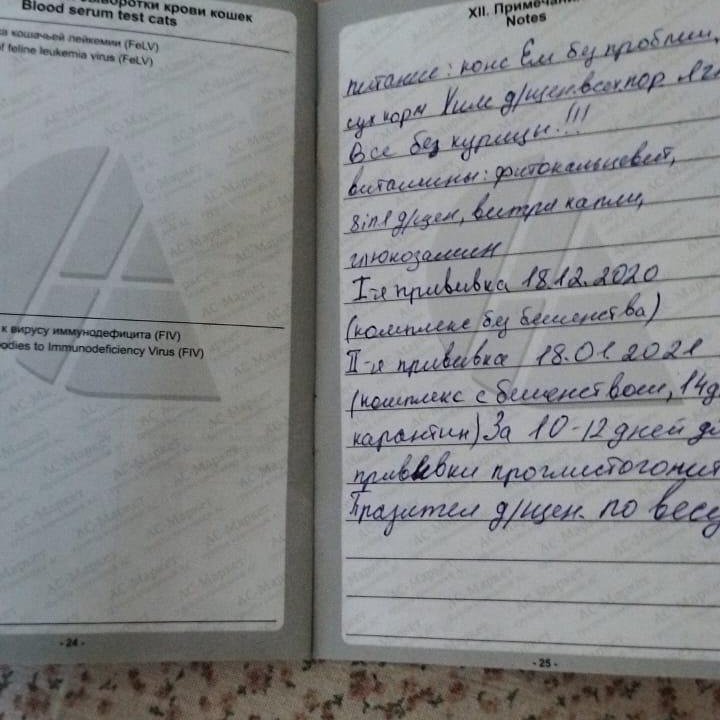 ыворотки крови кошек
Blood serum test cats
ка кошачьей лейкемии (FeLV)
of feline leukemia virus (FeLV)
к вирусу иммунодефицита (FIV)
odies to Immunodeficiency Virus (FIV)
- 24 -
XII. Примечани
Notes
питание: конс Ем без проблем,
сух корм Хилс д/щен.всех пор.
Все без курицы!!!
витамины: фитокальцевит,
8in1 д/щен, витри капли,
глюкозамин
I-я прививка 18.12.2020
(комплекс без бешенства)
II-я прививка 18.01.2021
(комплекс с бешенством, 14д
карантин) За 10-12 дней до
прививки проглистогонит
Празител д/щен. по весу
- 25 -
АС-Маркет